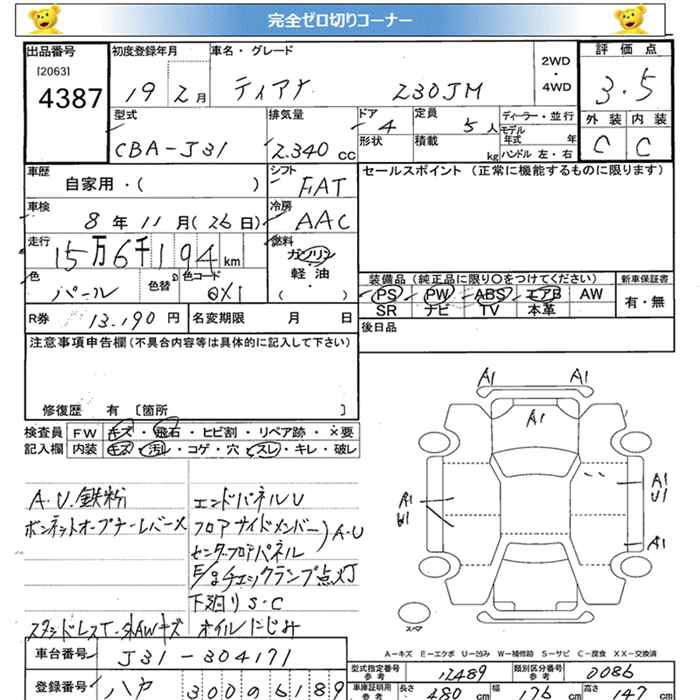 完全ゼロ切りコーナー
出品番号 初度登録年月 車名・グレード 評価点
[2063] 2WD・4WD
4387 19 2月 ティアナ 230JM 3.5
型式 排気量 ドア 定員 ディーラー・並行 外装 内装
CBA-J31 2.340cc 4 5人 モデル年式 年 C C
形状 積載 kg ハンドル 左・右
車歴 シフト セールスポイント (正常に機能するものに限ります)
自家用・( ) FAT
車検 冷房
8年11月(26日) AAC
走行 燃料
15万6千194km ガソリン
色 色替 色コード 軽油
パール QX1 ・( )
装備品 (純正品に限り○をつけてください) 新車保証書
PS PW ABS エアB AW 有・無
SR ナビ TV 本革
R券 13.190円 名変期限 月 日
後日品
注意事項申告欄(不具合内容等は具体的に記入して下さい)
修復歴 有 〔箇所 〕
検査員 FW キズ・飛石・ヒビ割・リペア跡・×要
記入欄 内装 キズ・汚レ・コゲ・穴・スレ・キレ・破レ
A1 A1
A1
A1 A1
U1
A1
スペア
A.U.鉄粉 エンドパネルU
ボンネットオープナーレバー× フロアサイドメンバー)A・U
センターフロアパネル
E/gチェックランプ点灯
下廻りS・C
スタッドレスT・外AWキズ オイルにじみ
A-キズ E-エクボ U-凹み W-補修跡 S-サビ C-腐食 XX-交換済
車台番号 J31-304171
型式指定番号 参考 12489 類別区分番号 参考 0086
登録番号
車庫証明用 参考 長さ 480cm 幅 176cm 高さ 147cm